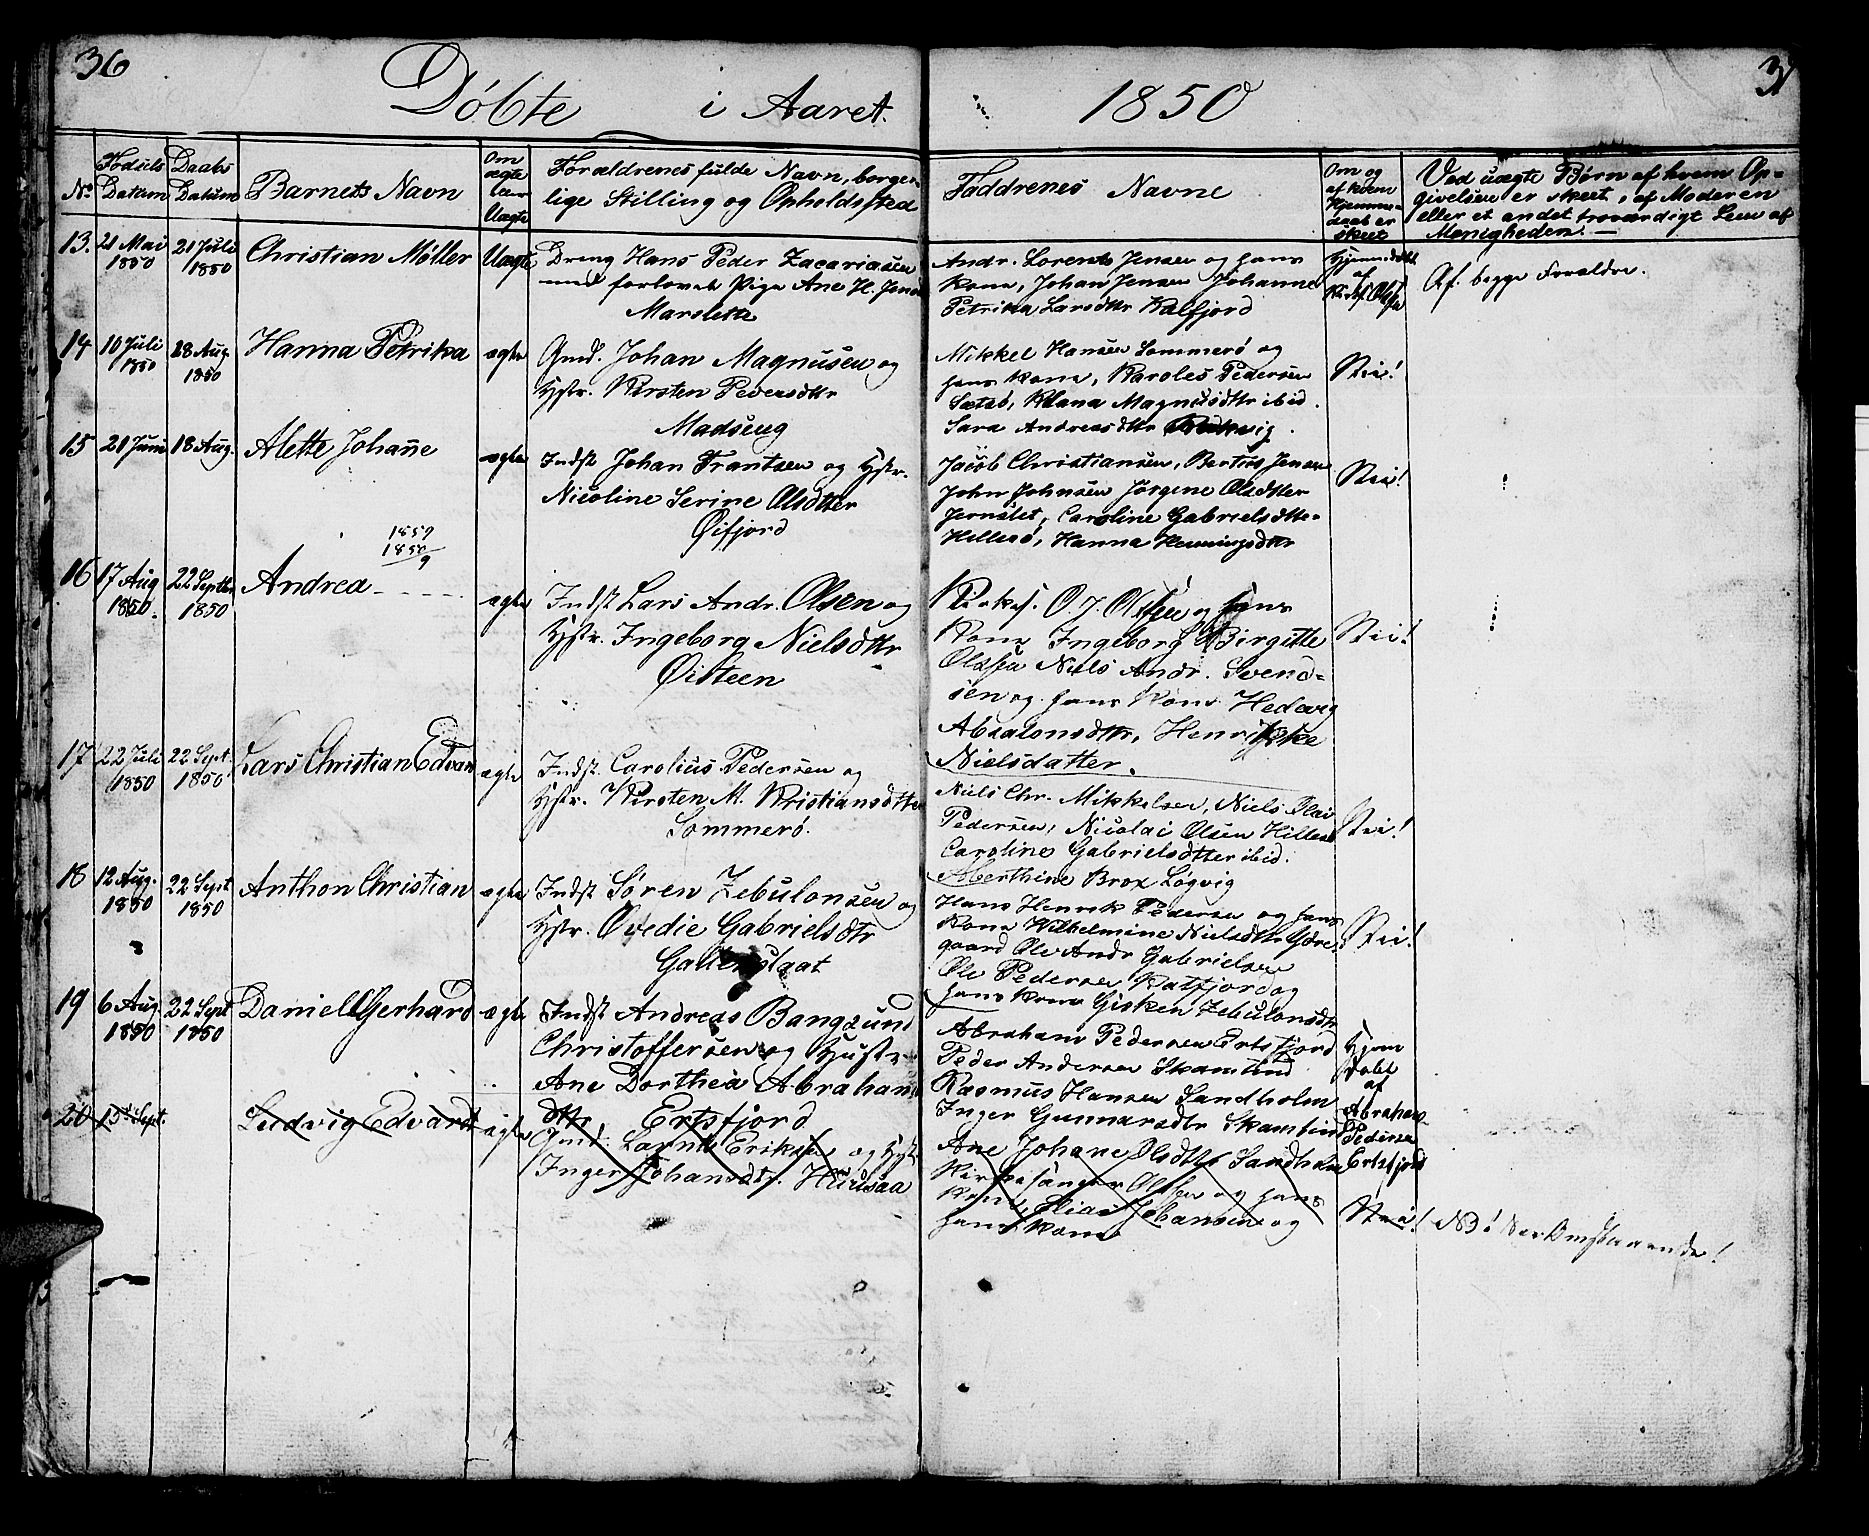 36
Døbte i Aaret
1850
37
No
Fødsels Datum
Daabs Datum
Barnets Navn
Om ægte eller Uægte
Forældrenes fulde Navn, borger-
lige Stilling og Opholdssted
Faddrenes Navne
Om og af hvem Hjemme-daab er skeet
Ved uægte Børn af hvem Op-
givelsen er skeet, af Moderen
eller et andet troværdigt Lem af
Menigheden.
13. 21 Mai 1850 21 Juli 1850 Christian Møller Uægte
Dreng Hans Peder Zacariasen
med forlovet Pige Ane H. Jens
Marslette
Andr. Lorents Jensen og hans
Kone, Johan Jensen Johanne
Petrika Larsdttr Kalfjord
Hjemmedøbt
af
Af begge Forældre.
14 10 Juli 1850 28 Aug 1850 Hanna Petrika ægte
Gmd. Johan Magnusen og
Hstr. Kirsten Pedersdttr
Madseng
Mikkel Hansen Sommerø og
hans Kone, Karoles Pedersen
Sætsø, Klana Magnusdttr ibid.
Sara Andreasdttr
Nei!
15 21 Juni 18 Aug. Alette Johañe ægte
Indst Johan Frantsen og Hstr.
Nicoline Serine Olsdtter
Øifjord
Jacob Christiansen, Bertus Jensen
John Johnsen Jørgine Olsdtter
Jernslet, Caroline Gabrielsdtte-
Hillesø, Hanna Henningsdttr
Nei!
1859
1850
9
16 17 Aug 1850. 22 Septbr 1850 Andrea ægte
Indst Lars Andr. Olsen og
Hstr. Ingeborg Nielsdttr
Øisteen
Kirkes. O. J. Olsen og hans
Kone Ingeborg Birgitte
Olsen Niels Andr. Svend-
sen og hans Kone Hedevig
Absalonsdttr, Henrikke
Nielsdatter.
Nei!
17 22 Juli 1850 22 Sept. 1850 Lars Christian Edvar ægte
Indst. Carolius Pedersen og
Hstr. Kirsten M. Kristiansdtter
Sommerø.
Niels Chr. Mikkelsen, Niels Olai
Pedersen, Nicolai Olsen Hillesø
Caroline Gabrielsdtter ibid.
Aberthine Brox Løgvig
Nei!
18 12 Aug. 1850 22 Sept 1850 Anthon Christian ægte
Indst Søren Zebulonsen og
Hstr. Øvedie Gabrielsdtr
Hans Henrik Pedersen og hans
Kone Wilhelmine Nielsdttr Ydre-
gaard Ole Andr Gabrielsen
Ole Pedersen Katfjord og
hans Kone Gisken Zebulonsdtr
Nei!
19 6 Aug. 1850 22 Sept 1850 Daniel Gerhard ægte
Indst Andreas Bangsund
Christoffersen og Hustr
Ane Dorthea Abraham
dttr Ertsfjord
Abraham Pedersen Ertsfjord
Peder Andersen Skamtind
Rasmus Hansen Sandholm
Inger Gunnarsdtr Skamtind
Ane Johane Olsdttr Sandholm
Hjem
døbt
af
Abraham
Pedersen
Ertsfjord
20 15 Sept. Ludvig Edvardt ægte
Gmd. Eriksen og Hstr
Inger Johansdtr.
Kirkesanger Olsen og hans
Kone, Elias Johansen og
hans Kone
Nei! NB! See Omstaaende!